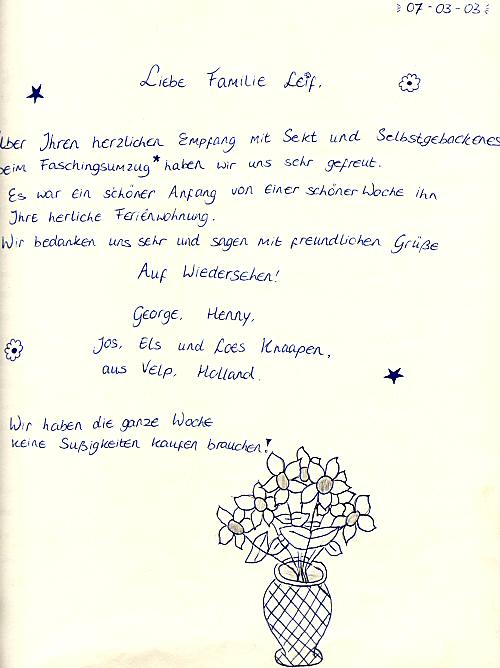 07-03-03
Liebe Familie Leif,
Über Ihren herzlichen Empfang mit Sekt und Selbstgebackenes
beim Faschingsumzug* haben wir uns sehr gefreut.
Es war ein schöner Anfang von einer schöner Woche ihn
Ihre herliche Ferienwohnung.
Wir bedanken uns sehr und sagen mit freundlichen Grüße
Auf Wiedersehen!
George, Henny,
Jos, Els und Loes Knaapen,
aus Velp, Holland.
Wir haben die ganze Woche
keine Sußigkeiten kaufen brauchen!